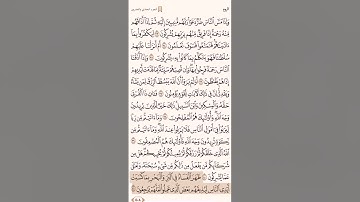 الروم
الجزء الحادي والعشرون
وَإِذَا مَسَّ ٱلنَّاسَ ضُرٌّ دَعَوْا۟ رَبَّهُم مُّنِيبِينَ إِلَيْهِ ثُمَّ إِذَآ أَذَاقَهُم
مِّنْهُ رَحْمَةً إِذَا فَرِيقٌ مِّنْهُم بِرَبِّهِمْ يُشْرِكُونَ ٣٣ لِيَكْفُرُوا۟ بِمَآ
ءَاتَيْنَٰهُمْ فَتَمَتَّعُوا۟ فَسَوْفَ تَعْلَمُونَ ٣٤ أَمْ أَنزَلْنَا عَلَيْهِمْ
سُلْطَٰنًا فَهُوَ يَتَكَلَّمُ بِمَا كَانُوا۟ بِهِۦ يُشْرِكُونَ ٣٥ وَإِذَآ أَذَقْنَا
ٱلنَّاسَ رَحْمَةً فَرِحُوا۟ بِهَا وَإِن تُصِبْهُمْ سَيِّئَةٌۢ بِمَا قَدَّمَتْ
أَيْدِيهِمْ إِذَا هُمْ يَقْنَطُونَ ٣٦ أَوَلَمْ يَرَوْا۟ أَنَّ ٱللَّهَ يَبْسُطُ ٱلرِّزْقَ
لِمَن يَشَآءُ وَيَقْدِرُ إِنَّ فِى ذَٰلِكَ لَءَايَٰتٍ لِّقَوْمٍ يُؤْمِنُونَ ٣٧ فَـَٔاتِ ذَا ٱلْقُرْبَىٰ
حَقَّهُۥ وَٱلْمِسْكِينَ وَٱبْنَ ٱلسَّبِيلِ ذَٰلِكَ خَيْرٌ لِّلَّذِينَ يُرِيدُونَ
وَجْهَ ٱللَّهِ وَأُو۟لَٰٓئِكَ هُمُ ٱلْمُفْلِحُونَ ٣٨ وَمَآ ءَاتَيْتُم مِّن رِّبًا
لِّيَرْبُوَا۟ فِىٓ أَمْوَٰلِ ٱلنَّاسِ فَلَا يَرْبُوا۟ عِندَ ٱللَّهِ وَمَآ ءَاتَيْتُم مِّن
زَكَوٰةٍ تُرِيدُونَ وَجْهَ ٱللَّهِ فَأُو۟لَٰٓئِكَ هُمُ ٱلْمُضْعِفُونَ ٣٩ ٱللَّهُ
ٱلَّذِى خَلَقَكُمْ ثُمَّ رَزَقَكُمْ ثُمَّ يُمِيتُكُمْ ثُمَّ يُحْيِيكُمْ هَلْ مِن
شُرَكَآئِكُم مَّن يَفْعَلُ مِن ذَٰلِكُم مِّن شَىْءٍ سُبْحَٰنَهُۥ وَتَعَٰلَىٰ
عَمَّا يُشْرِكُونَ ٤٠ ظَهَرَ ٱلْفَسَادُ فِى ٱلْبَرِّ وَٱلْبَحْرِ بِمَا كَسَبَتْ
أَيْدِى ٱلنَّاسِ لِيُذِيقَهُم بَعْضَ ٱلَّذِى عَمِلُوا۟ لَعَلَّهُمْ يَرْجِعُونَ ٤١
٤٠٨